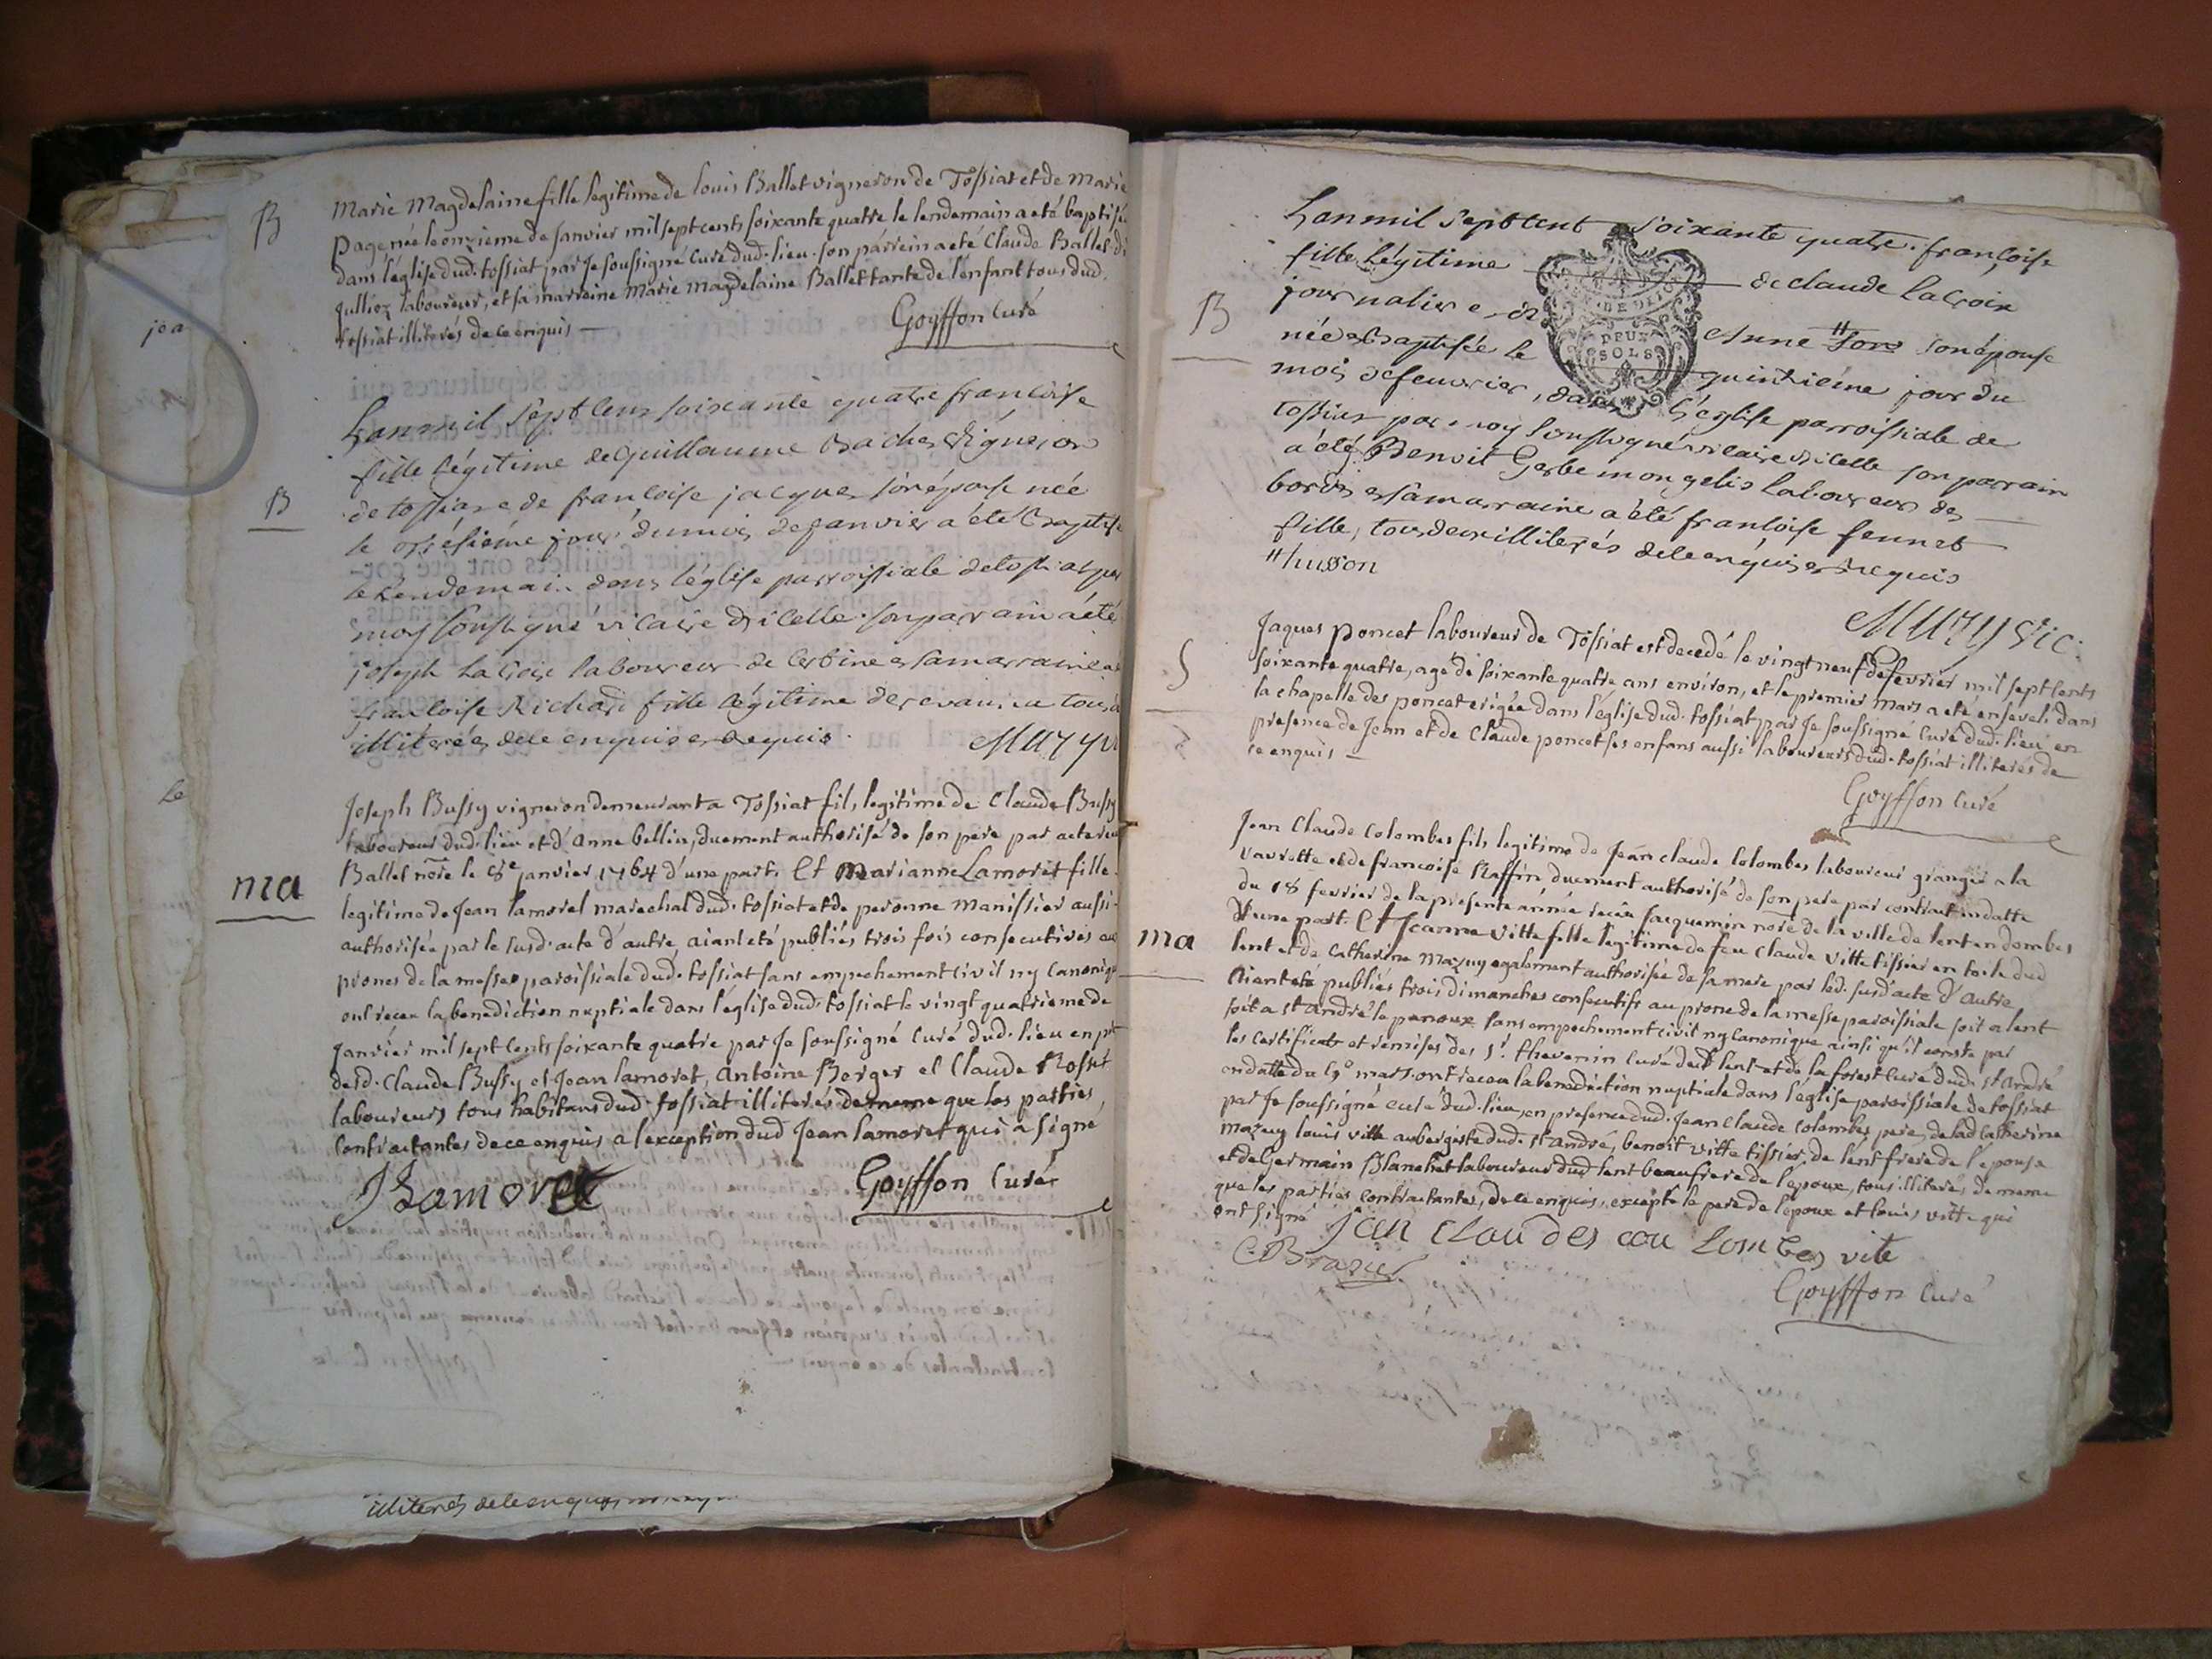 B
Marie Magdelaine fille legitime de Louis Ballet vigneron de Tossiat et de Marie
Page née le onzieme de Janvier mil sept cents soixante quatre le lendemain a eté baptisée
dans l'église dud. tossiat par Je soussigné Curé dud. lieu. son parrein a eté Claude Ballet di
Jullioz laboureur, et sa marreine Marie Magdelaine Ballet tante de l'enfant tous dud.
tossiat illiterés de ce enquis
Goyffon Curé
B
Lan mil Sept Cens soixante quatre francoise
fille Légitime de Guillaume Vigneron
de tossiat de francoise jacques son épouse née
le jour du mois de janvier a été Baptisé
le Lendemain dans l'église parroissiale de tossiat par
moy soussigné vicaire d'icelle. son parrain a été
joseph La Croix laboureur de Certine et sa marraine a
francoise Richard fille légitime de tous
illiterés de ce enquis et requis.
Muzy
ma
Joseph Bussy vigneron demeurant a Tossiat fils legitime de Claude Bussy
laboureur dud. lieu et d'anne bellin, duement authorisé de son pere par acte receu
Ballet nore le 8e janvier 1764 d'une part. Et Marianne Lamoret fille
legitime de Jean lamoret marechal dud. tossiat et de peronne Manissier aussi
authorisée par le susd. acte d'autre, aiant eté publiés trois fois consecutives au
prones de la messe paroissiale dud. tossiat sans empechement civil ny Canonique
ont receu la benediction nuptiale dans l'église dud. tossiat le vingt quatrieme de
Janvier mil sept cents soixante quatre par Je soussigné Curé dud. lieu en pnt
desd. Claude Bussy et Jean lamoret, Antoine Berger et Claude Rosset
laboureurs tous habitans dud. tossiat illiterés de meme que les parties
Contractantes de ce enquis a l'exception dud Jean lamoret qui a signé
J Lamoret
Goyffon Curé
illiterés de ce enquis
joa
Le
BEN·BEDIT
DEUX
SOLS
B
Lan mil Sept Cent Soixante quatre. françoise
fille Légitime de Claude La Croix
journalier et d'Anne # Son épouse
née et baptisée le quinzième jour du
mois de feuvrier, dans L'église parroissiale de
tossiat par moy Soussigné vicaire d'icelle son parrain
a été Benoit Gerbe mongelis laboureur de
et sa marraine a été francoise fennet
fille, tous deux illiterés de ce enquis et requis
# husson
Muzy Vic:
S
Jaques Poncet laboureur de Tossiat est decedé le vingt neuf de fevrier mil sept Cents
soixante quatre, agé de soixante quatre ans environ, et le premier Mars a eté enseveli dans
la chapelle des poncet erigée dans l'église dud. tossiat par Je soussigné Curé dud. lieu, en
presence de Jean et de Claude poncet ses enfans aussi laboureurs dud. tossiat illiterés de
ce enquis
Goyffon Curé
ma
Jean Claude Colombes fils legitime de Jean Claude Colombes laboureur granger a la
Vavrette et de francoise Raffin duement authorisé de son pere par contract en datte
du 18 fevrier de la presente année receu Jacquemin nore de la ville de lent en dombes
d'une part. Et Jeanne Vitte fille legitime de feu Claude Vitte tissier en toile dud
lent et de Catherine Mazuy egalement authorisée de sa mere par led. susd'acte d'autre
Aiant eté publiés trois dimanches consecutifs au prone de la messe paroissiale soit a lent
soit a st André le panoux sans empechement civil ny Canonique ainsi qu'il conste par
les Certificats et remises des Sr. thevenin Curé dud lent et de la forest Curé dud. st André
en datte du mars. ont receu la benediction nuptiale dans l'église paroissiale de tossiat
par Je soussigné curé dud. lieu, en presence dud. Jean Claude Colombes pere, de lad Catherine
Mazuy louis vitte aubergiste dud. st André, benoit vitte tissier de lent frere de l'epouse
et de Germain Blanchet laboureur dud lent beaufrere de l'epoux, tous illiterés de meme
que les parties contractantes, de ce enquis, excepté le pere de l'epoux et louis vitte qui
ont signé
jean Claudes cou lombes vite
C. Brazier
Goyffon Curé